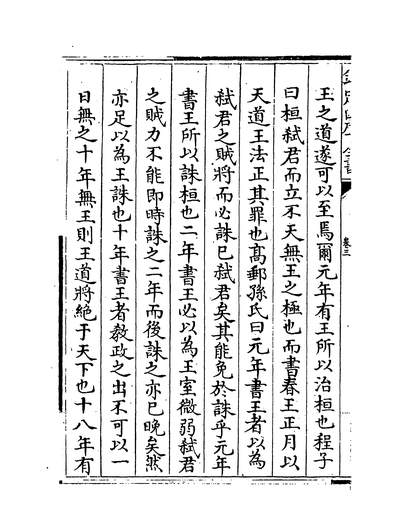 王之道遂可以至焉爾元年有王所以治桓也程子
曰桓弑君而立不天無王之極也而書春王正月以
天道王法正其罪也高郵孫氏曰元年書王者以為
弑君之賊將而必誅已弑君矣其能免於誅乎元年
書王所以誅桓也二年書王必以為王室微弱弑君
之賊力不能即時誅之二年而後誅之亦已晚矣然
亦足以為王誅也十年書王者教政之出不可以一
日無之十年無王則王道將絶于天下也十八年有
卷三